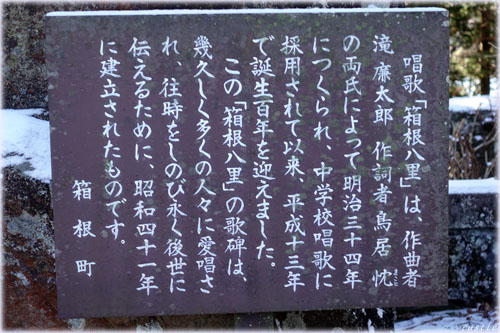 唱歌「箱根八里」は、作曲者
滝廉太郎 作詞者鳥居 忱
の両氏によって明治三十四年
につくられ、中学校唱歌に
採用されて以来、平成十三年
で誕生百年を迎えました。
この「箱根八里」の歌碑は、
幾久しく多くの人々に愛唱さ
れ、往時をしのび永く後世に
伝えるために、昭和四十一年
に建立されたものです。
箱根町